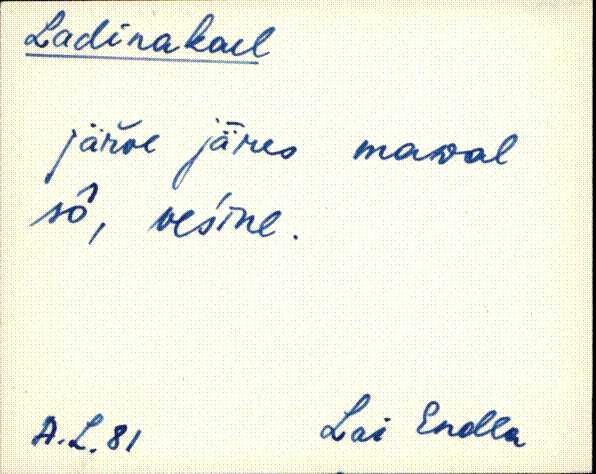 Ladinakael
järve järes maoal
sô, veśine.
A.L.81 Lai Endla